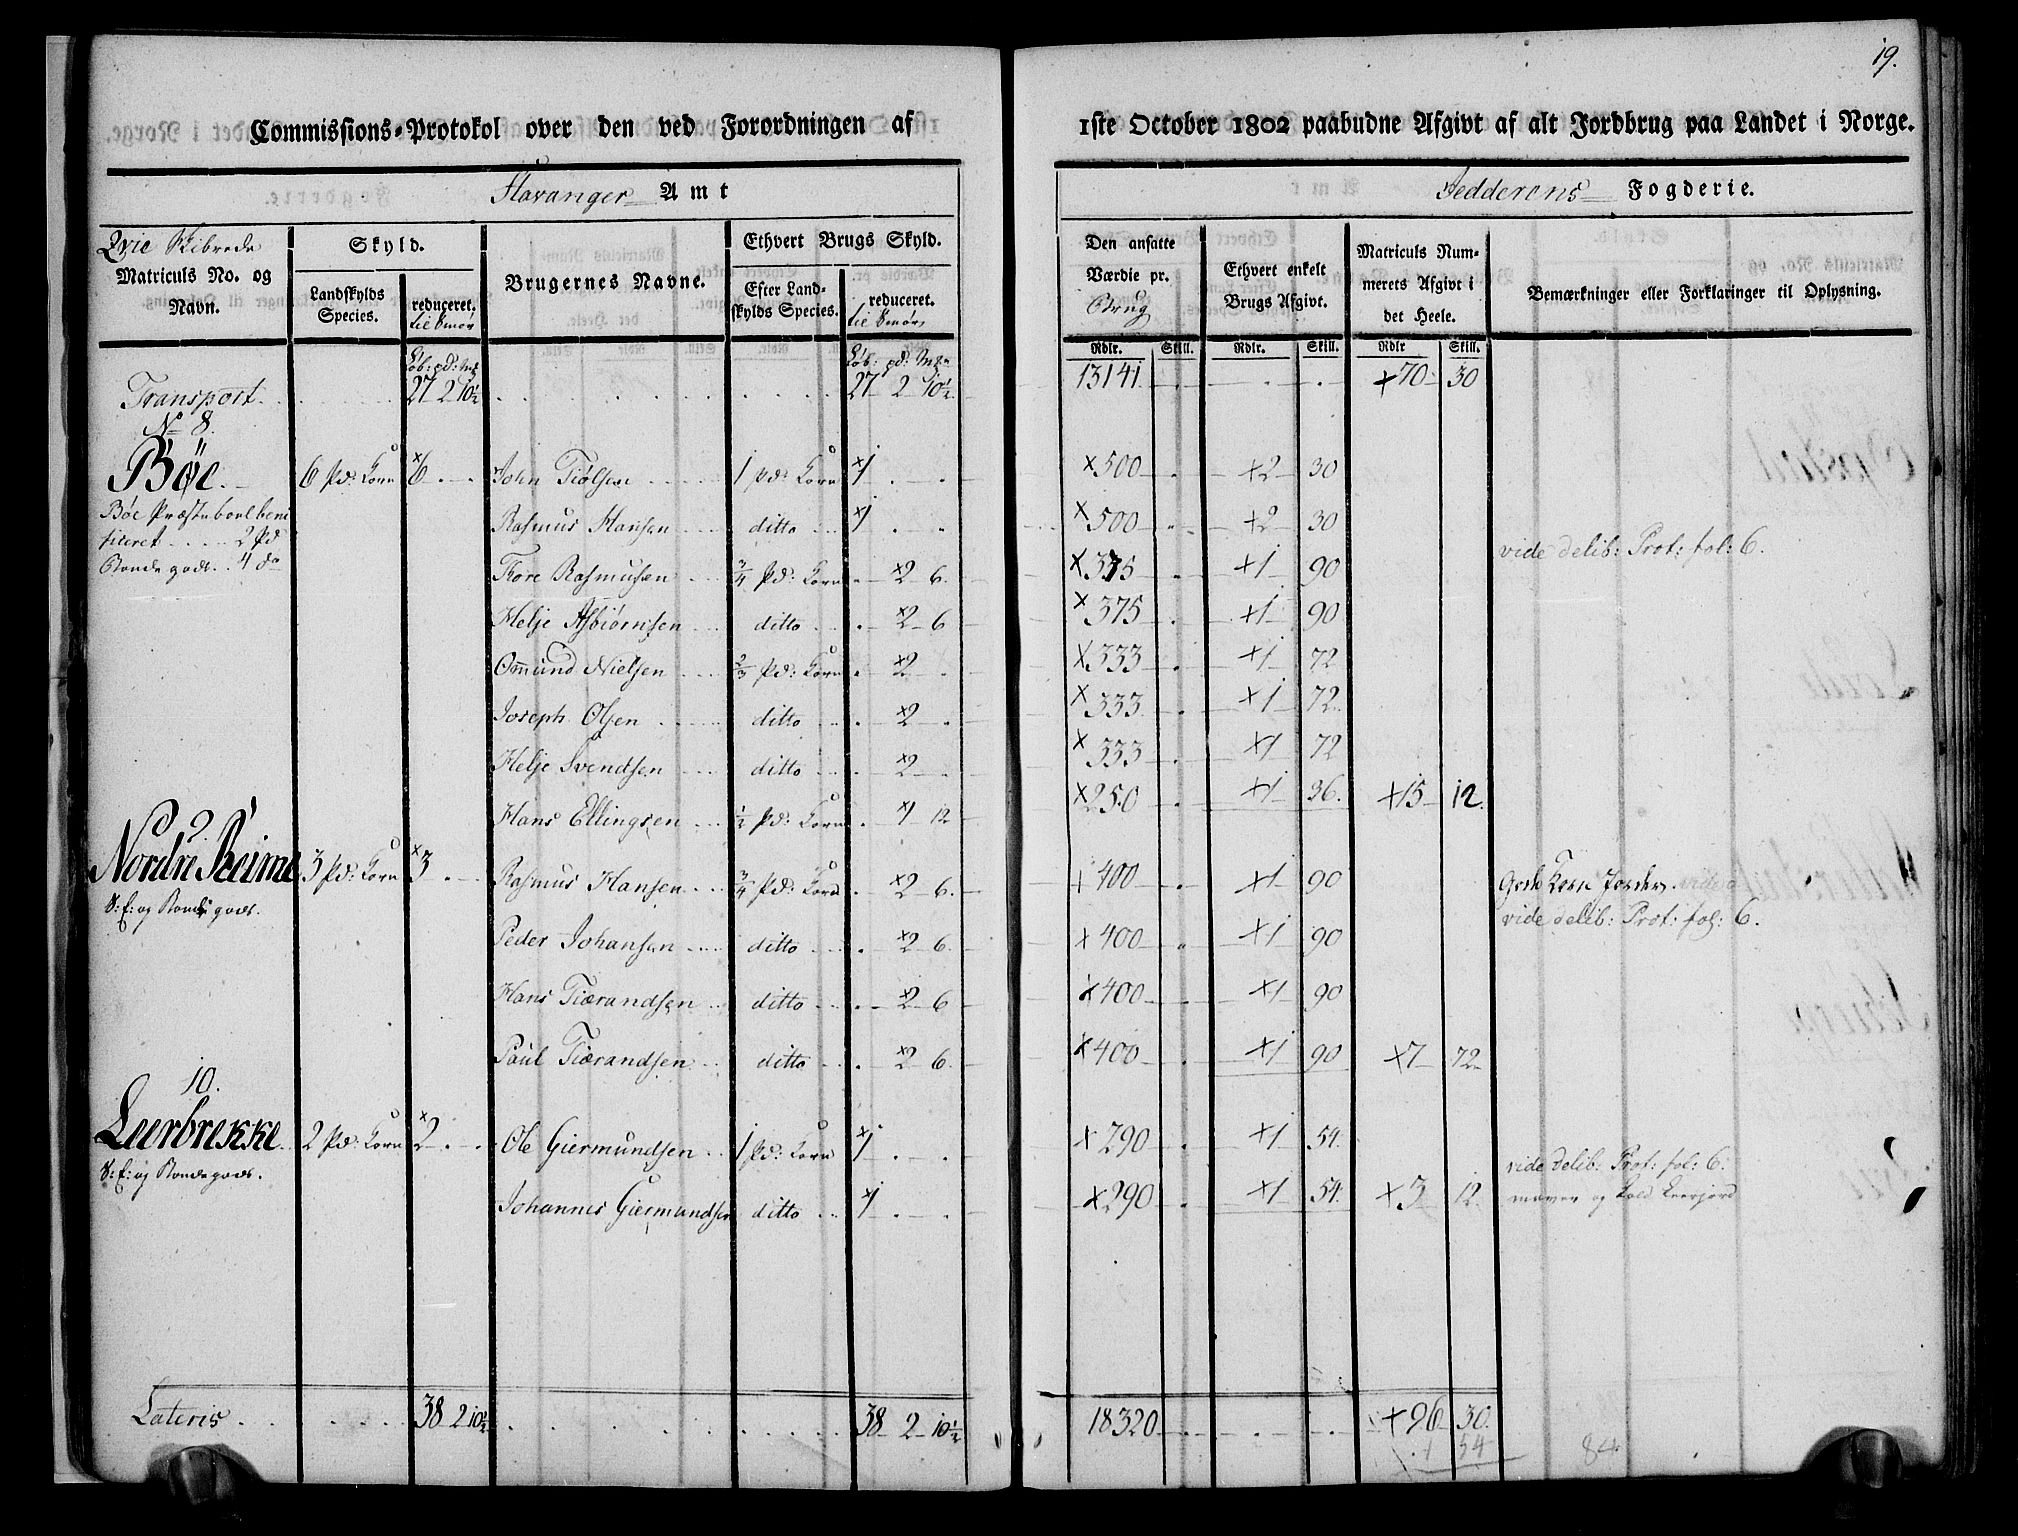 19.
Commissions-Protokol over den ved Forordningen af 1ste October 1802 paabudne Afgivt af alt Jordbrug paa Landet i Norge.
Stavanger Amt
Jedderens Fogderie.
Qvie Skibrede
Matriculs No. og Navn.
Skyld.
Landskylds Species.
reduceret. til Smør
Brugernes Navne.
Ethvert Brugs Skyld.
Efter Landskylds Species.
reduceret. til Smør
Den ansatte Værdie pr. Brug
Ethvert enkelt Brugs Afgivt.
Matriculs Nummerets Afgivt i det Heele.
Bemærkninger eller Forklaringer til Oplysning.
Rdlr. Skill. Rdlr. Skill. Rdlr Skill.
Løb: pd: Mk Løb: pd: Mk
Transport 27 2 10½ 27 2 10½ 13141 . . . +70 30
No 8.
Bøe. 6 Pd: Korn ×6 . . John Tiølsen 1 pd: Korn ×1 . . ×500 . +2 30
Bøe Præstebool beni
ficeret 2 Pd Rasmus Hansen ditto ×1 . . ×500 . +2 30
vide delib: Prot: fol: 6.
Bondegods 4 do Tore Rasmusen ¾ Pd: Korn . ×2 6. ×375 . +1 90
Helje Asbiørnsen ditto . ×2 6 ×375 . +1 90
Ommund Nielsen ⅔ Pd: Korn . ×2 . ×333 . +1 72
Joseph Olsen ditto . ×2 . ×333 . +1 72
Helje Svendsen ditto . ×2 . ×333 . +1 72
Hans Ellingsen ½ Pd: Korn . ×1 12 ×250 . +1 36. +15 12.
9.
Nordre Reime 3 Pd: Korn ×3 . Rasmus Hansen ¾ Pd: Korn . ×2 6. +400 . +1 90 Gode Korn Jorder.
B: E: og Bondegods. vide delib: Prot: fol: 6.
Peder Johansen ditto . ×2 6. +400 . +1 90
Hans Tiærandsen ditto . ×2 6 +400 . +1 90
Paul Tiærandsen ditto . ×2 6. ×400 . +1 90 +7 72
10.
Leerbrekke 2 Pd: Korn ×2 . . Ole Giermundsen 1 Pd: Korn ×1 . . +290 . +1 54.
B: E: og Bondegods. vide delib: Prot: fol: 6.
Johannes Giermundsen ditto ×1 . . ×290 . +1 54. +3 12. maver og kold Leerjord
Lateris 38 2 10½ 38 2 10½ 18320 . . . +96 30.
1 54 84